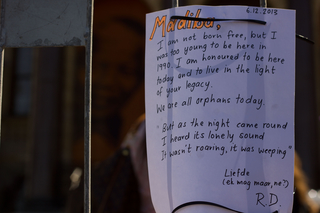 6.12.2013
Madiba,
I am not born free, but I
was too young to be here in
1990. I am honoured to be here
today and to live in the light
of your legacy.
We are all orphans today.
"But as the night came round
I heard its lonely sound
It wasn't roaring, it was weeping"
Liefde
(ek mag maar, ne?)
R.D.